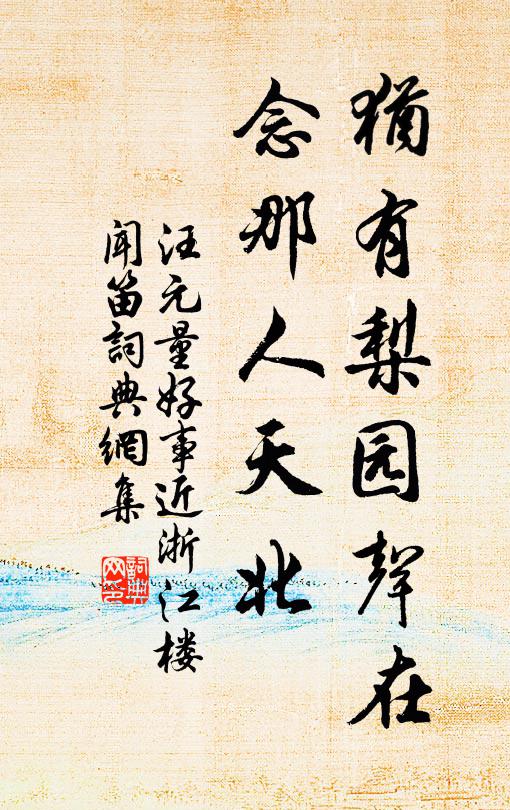 猶有梨园聲在
念那人天北
汪元量好事近浙江楼
闻笛詞典網集
詞典网